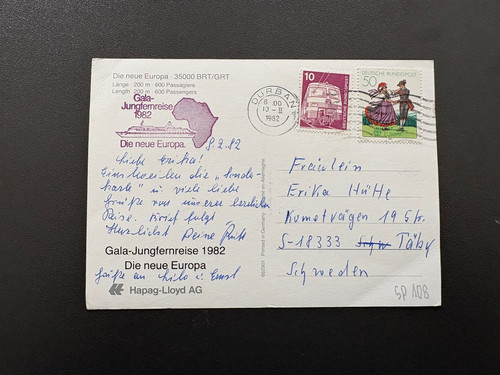 Die neue Europa · 35000 BRT/GRT
Länge · 200 m · 600 Passagiere
Length · 200 m · 600 Passengers
Gala-
Jungfernreise
1982
Die neue Europa.
8.2.82
Liebe Erika!
Einstweilen die "Sonder-
karte" u. viele liebe
Grüße von unserer herrlichen
Reise. Brief folgt
Herzlichst Deine Ruth
Gala-Jungfernreise 1982
Die neue Europa
Grüße an Milo u. Ernst
Hapag-Lloyd AG
Printed in Germany
DURBAN
8 00
13 – II
1982
10
DEUTSCHE BUNDESPOST
50
Fräulein
Erika Hütte
Kometvägen 19
S-18333 Täby
Schweden
SP 108